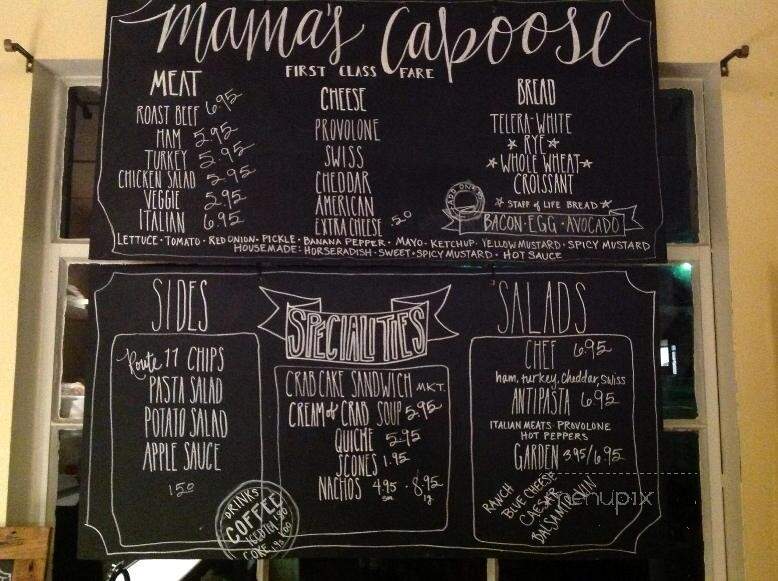 Mama's Caboose
FIRST CLASS FARE
MEAT
ROAST BEEF 6.95
HAM 5.95
TURKEY 5.95
CHICKEN SALAD 5.95
VEGGIE 5.95
ITALIAN 6.95
CHEESE
PROVOLONE
SWISS
CHEDDAR
AMERICAN
EXTRA CHEESE .50
BREAD
TELERA-WHITE
RYE
WHOLE WHEAT
CROISSANT
STAFF of LIFE BREAD
ADD ONS
BACON · EGG · AVOCADO
LETTUCE · TOMATO · RED ONION · PICKLE · BANANA PEPPER · MAYO · KETCHUP · YELLOW MUSTARD · SPICY MUSTARD
HOUSEMADE: HORSERADISH · SWEET · SPICY MUSTARD · HOT SAUCE
SIDES
Route 11 CHIPS
PASTA SALAD
POTATO SALAD
APPLE SAUCE
1.50
DRINKS
COFFEE
SPECIALITIES
CRAB CAKE SANDWICH MKT.
CREAM of CRAB SOUP 5.95
QUICHE 5.95
SCONES 1.95
NACHOS 4.95 sm · 8.95 lg
SALADS
CHEF 6.95
ham, turkey, cheddar, swiss
ANTIPASTA 6.95
ITALIAN MEATS · PROVOLONE
HOT PEPPERS
GARDEN 3.95/6.95
RANCH
BLUE CHEESE
CAESAR
BALSAMIC VIN
menupix